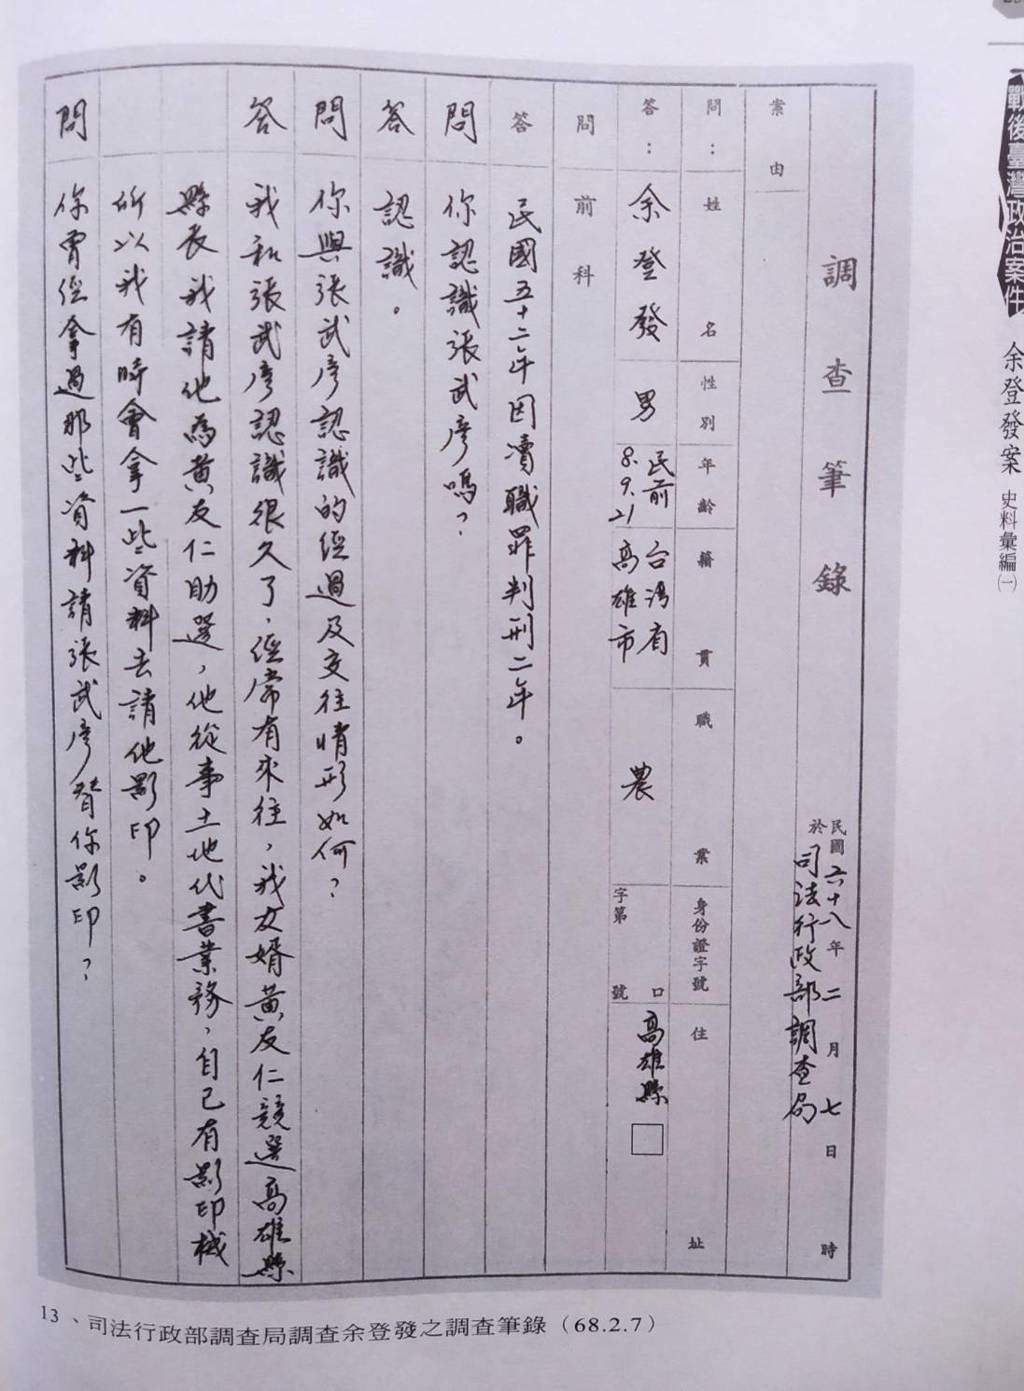 戰後臺灣政治案件
余登發案 史料彙編㈠
調查筆錄
民國六十八年二月七日 時
於司法行政部調查局
案由
問：姓名 性別 年齡 籍貫 職業 身份證字號 住址
答：余登發 男 民前8.9.21 台灣省高雄市 農 字第 號 口 高雄縣□
問 前科
答 民國五十二年因瀆職罪判刑二年。
問 你認識張武彥嗎？
答 認識。
問 你與張武彥認識的經過及交往情形如何？
答 我和張武彥認識很久了，經常有來往，我女婿黃友仁競選高雄縣
縣長我請他為黃友仁助選，他從事土地代書業務，自己有影印機
所以我有時會拿一些資料去請他影印。
問 你曾經拿過那些資料請張武彥替你影印？
13、司法行政部調查局調查余登發之調查筆錄（68.2.7）